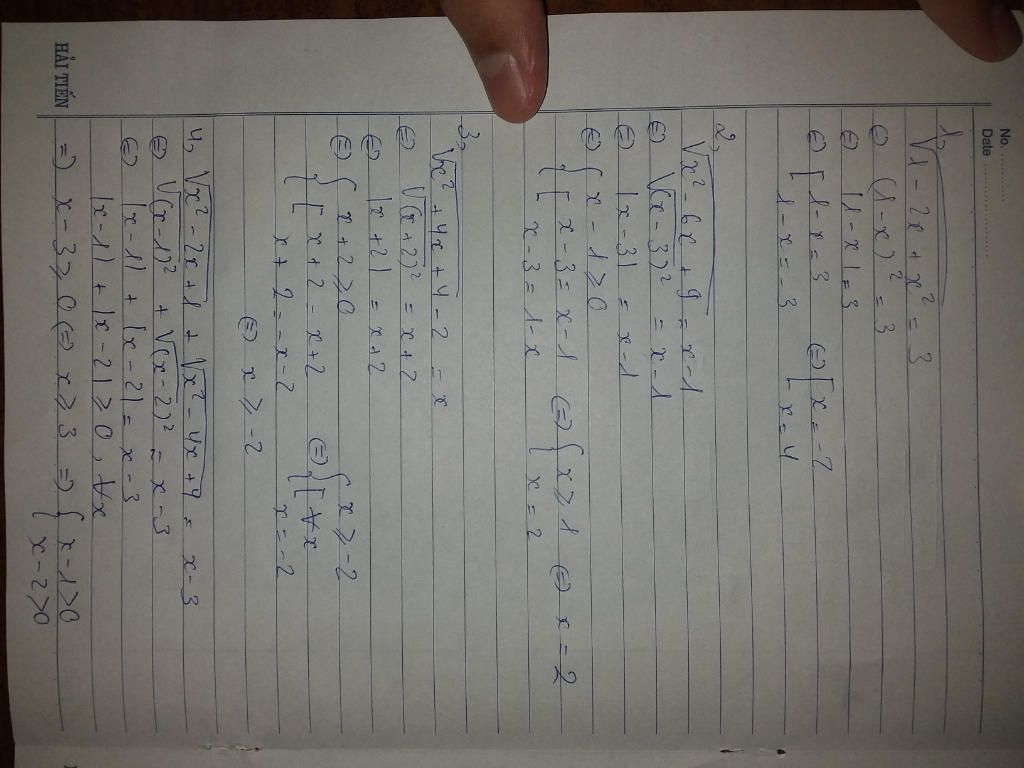 No. ............
Date ....................
1, √(1 - 2x + x²) = 3
⇔ (1-x)² = 3
⇔ |1-x| = 3
⇔ [ 1-x = 3 ⇔ [ x = -2
1-x = -3 x = 4
2, √(x² - 6x + 9) = x-1
⇔ √(x-3)² = x-1
⇔ |x-3| = x-1
⇔ { x-1 ≥ 0
[ x-3 = x-1 ⇔ { x ≥ 1 ⇔ x = 2
x-3 = 1-x x = 2
3, √(x² + 4x + 4) - 2 = x
⇔ √(x+2)² = x+2
⇔ |x+2| = x+2
⇔ { x+2 ≥ 0 { x ≥ -2
[ x+2 = x+2 ⇔ [ ∀x
x+2 = -x-2 x = -2
⇔ x ≥ -2
4, √(x² - 2x + 1) + √(x² - 4x + 4) = x-3
⇔ √(x-1)² + √(x-2)² = x-3
⇔ |x-1| + |x-2| = x-3
|x-1| + |x-2| ≥ 0, ∀x
⇒ x-3 ≥ 0 ⇔ x ≥ 3 ⇒ { x-1 > 0
x-2 > 0
HẢI TIẾN